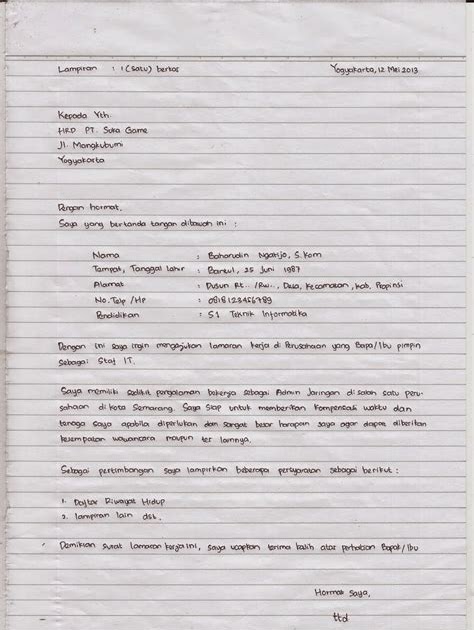 Lampiran : 1 (satu) berkas Yogyakarta, 12 Mei 2013
Kepada Yth.
HRD PT. Suka Game
Jl. Mangkubumi
Yogyakarta
Dengan hormat,
Saya yang bertanda tangan dibawah ini :
Nama : Baharudin Ngatijo, S.Kom
Tempat, Tanggal lahir : Bantul, 25 Juni 1987
Alamat : Dusun Rt.. /Rw.., Desa, Kecamatan, Kab, Propinsi
No. Telp /HP : 0818123456789
Pendidikan : S1 Teknik Informatika
Dengan ini saya ingin mengajukan lamaran kerja di Perusahaan yang Bapa/Ibu pimpin
sebagai Staf IT.
Saya memiliki sedikit pengalaman bekerja sebagai Admin Jaringan di salah satu peru-
sahaan di Kota Semarang. Saya siap untuk memberikan Kompensasi waktu dan
tenaga saya apabila diperlukan dan sangat besar harapan saya agar dapat diberikan
kesempatan wawancara maupun tes lainnya.
Sebagai pertimbangan saya lampirkan beberapa persyaratan sebagai berikut :
1. Daftar Riwayat Hidup
2. lampiran lain dst.
Demikian surat lamaran kerja ini, saya ucapkan terima kasih atas perhatian Bapak/Ibu
Hormat Saya,
ttd